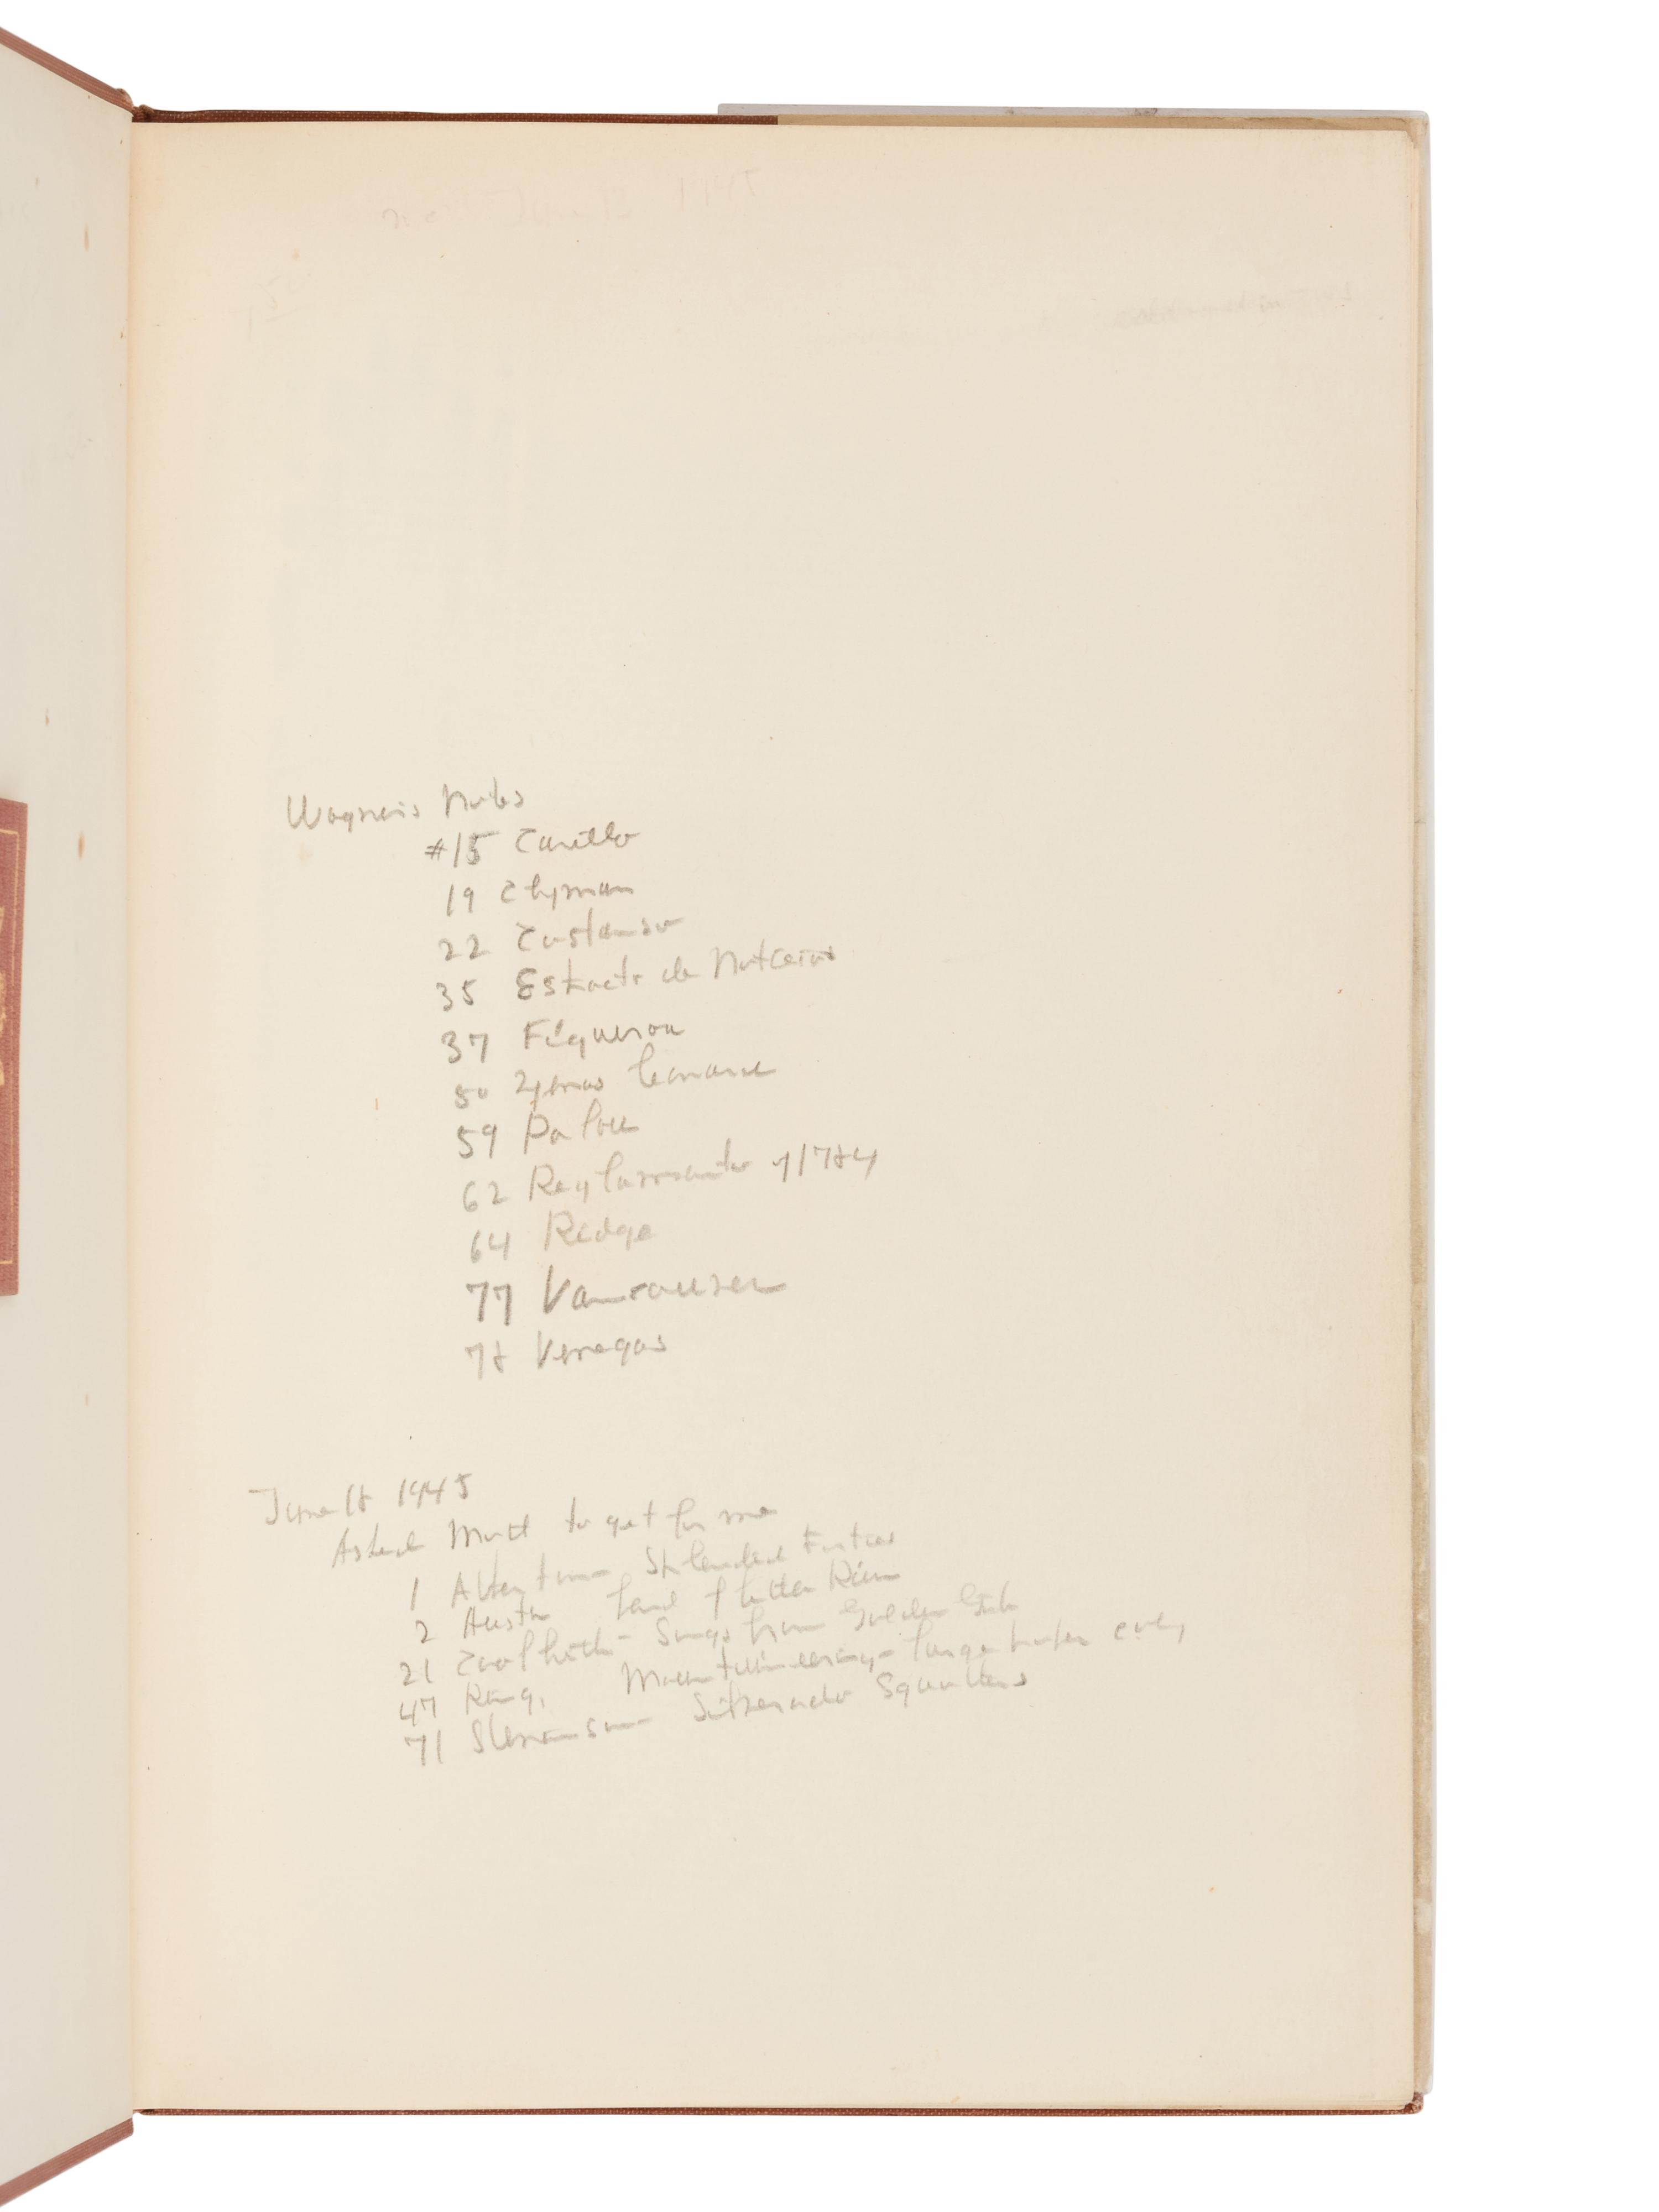 Wagner's Notes
#15 Carillo
19 Clyman
22 Costanso
35 Estracto de Noticias
37 Figueroa
50 Zenas Leonard
59 Palou
62 Reglamento of 1784
64 Ridge
77 Vancouver
78 Venegas
June 18 1945
Asked Mott to get for me
1 Atherton - Splendid Idle
2 Austin Land of Little Rain
21 Coolbrith - Songs from Golden Gate
47 King, Mountaineering - large paper
71 Stevenson - Silverado Squatters